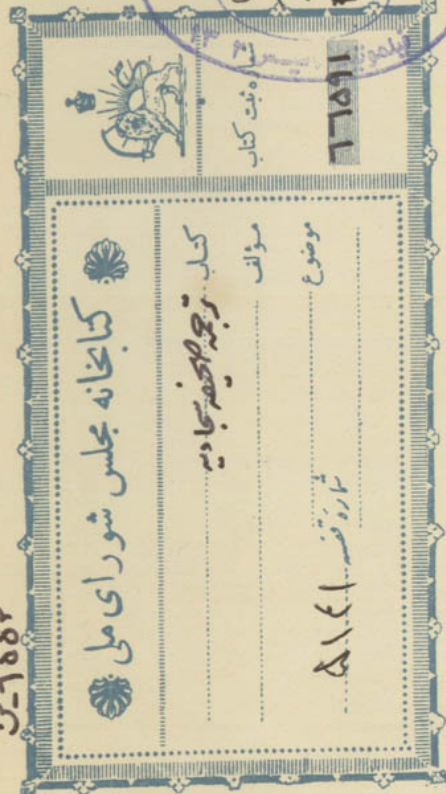 کتابخانه مجلس شورای ملی
کتاب ترجمه صحیفه سجادیه
مؤلف
موضوع
شماره قفسه ۵۱۴۱
شماره ثبت کتاب
۶۶۵۹۱